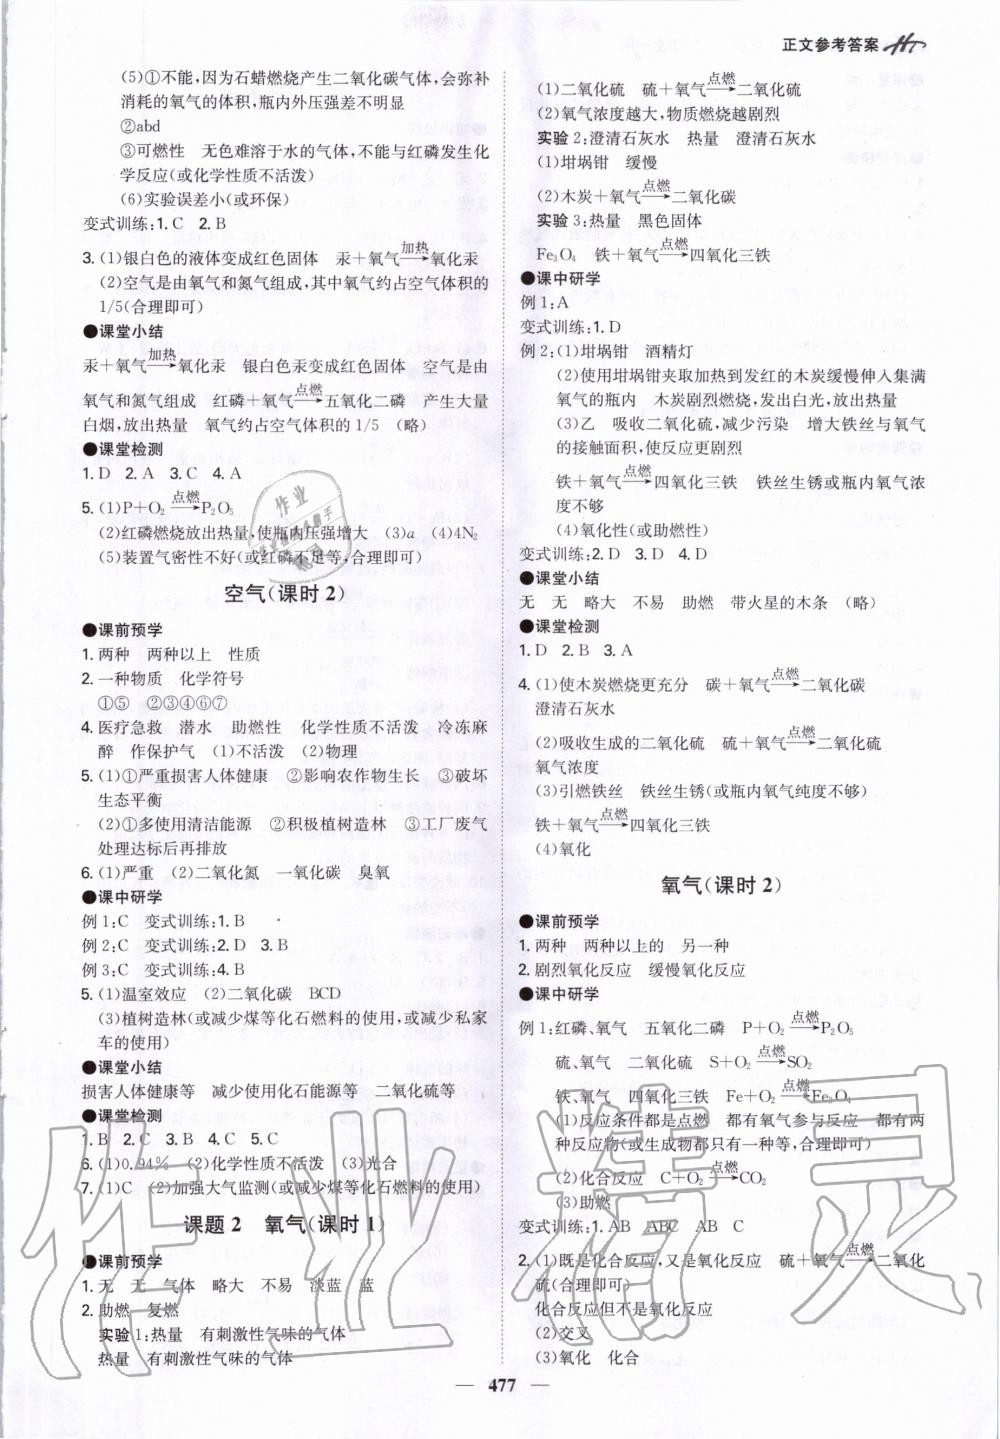 正文参考答案
(5)①不能,因为石蜡燃烧产生二氧化碳气体,会弥补
消耗的氧气的体积,瓶内外压强差不明显
②abd
③可燃性 无色难溶于水的气体,不能与红磷发生化
学反应(或化学性质不活泼)
(6)实验误差小(或环保)
变式训练:1.C 2.B
3.(1)银白色的液体变成红色固体 汞+氧气 加热→ 氧化汞
(2)空气是由氧气和氮气组成,其中氧气约占空气体积的
1/5(合理即可)
●课堂小结
汞+氧气 加热→ 氧化汞 银白色汞变成红色固体 空气是由
氧气和氮气组成 红磷+氧气 点燃→ 五氧化二磷 产生大量
白烟,放出热量 氧气约占空气体积的 1/5 (略)
●课堂检测
1.D 2.A 3.C 4.A
5.(1)P+O₂ 点燃→ P₂O₅
(2)红磷燃烧放出热量,使瓶内压强增大 (3)a (4)4N₂
(5)装置气密性不好(或红磷不足等,合理即可)
空气(课时 2)
●课前预学
1.两种 两种以上 性质
2.一种物质 化学符号
①⑤ ②③④⑥⑦
4.医疗急救 潜水 助燃性 化学性质不活泼 冷冻麻
醉 作保护气 (1)不活泼 (2)物理
5.(1)①严重损害人体健康 ②影响农作物生长 ③破坏
生态平衡
(2)①多使用清洁能源 ②积极植树造林 ③工厂废气
处理达标后再排放
6.(1)严重 (2)二氧化氮 一氧化碳 臭氧
●课中研学
例 1:C 变式训练:1.B
例 2:C 变式训练:2.D 3.B
例 3:C 变式训练:4.B
5.(1)温室效应 (2)二氧化碳 BCD
(3)植树造林(或减少煤等化石燃料的使用,或减少私家
车的使用)
●课堂小结
损害人体健康等 减少使用化石能源等 二氧化硫等
●课堂检测
1.B 2.C 3.B 4.C 5.C
6.(1)0.94% (2)化学性质不活泼 (3)光合
7.(1)C (2)加强大气监测(或减少煤等化石燃料的使用)
课题 2 氧气(课时 1)
●课前预学
1.无 无 气体 略大 不易 淡蓝 蓝
2.助燃 复燃
实验 1:热量 有刺激性气味的气体
热量 有刺激性气味的气体
(1)二氧化硫 硫+氧气 点燃→ 二氧化硫
(2)氧气浓度越大,物质燃烧越剧烈
实验 2:澄清石灰水 热量 澄清石灰水
(1)坩埚钳 缓慢
(2)木炭+氧气 点燃→ 二氧化碳
实验 3:热量 黑色固体
Fe₃O₄ 铁+氧气 点燃→ 四氧化三铁
●课中研学
例 1:A
变式训练:1.D
例 2:(1)坩埚钳 酒精灯
(2)使用坩埚钳夹取加热到发红的木炭缓慢伸入集满
氧气的瓶内 木炭剧烈燃烧,发出白光,放出热量
(3)乙 吸收二氧化硫,减少污染 增大铁丝与氧气
的接触面积,使反应更剧烈
铁+氧气 点燃→ 四氧化三铁 铁丝生锈或瓶内氧气浓
度不够
(4)氧化性(或助燃性)
变式训练:2.D 3.D 4.D
●课堂小结
无 无 略大 不易 助燃 带火星的木条 (略)
●课堂检测
1.D 2.B 3.A
4.(1)使木炭燃烧更充分 碳+氧气 点燃→ 二氧化碳
澄清石灰水
(2)吸收生成的二氧化硫 硫+氧气 点燃→ 二氧化硫
氧气浓度
(3)引燃铁丝 铁丝生锈(或瓶内氧气纯度不够)
铁+氧气 点燃→ 四氧化三铁
(4)氧化
氧气(课时 2)
●课前预学
1.两种 两种以上的 另一种
2.剧烈氧化反应 缓慢氧化反应
●课中研学
例 1:红磷、氧气 五氧化二磷 P+O₂ 点燃→ P₂O₅
硫、氧气 二氧化硫 S+O₂ 点燃→ SO₂
铁、氧气 四氧化三铁 Fe+O₂ 点燃→ Fe₃O₄
(1)反应条件都是点燃 都有氧气参与反应 都有两
种反应物(或生成物都只有一种等,合理即可)
(2)化合反应 C+O₂ 点燃→ CO₂
(3)助燃
变式训练:1.AB ABC AB C
2.(1)既是化合反应,又是氧化反应 硫+氧气 点燃→ 二氧化
硫(合理即可)
化合反应但不是氧化反应
(2)交叉
(3)氧化 化合
— 477 —
作业精灵